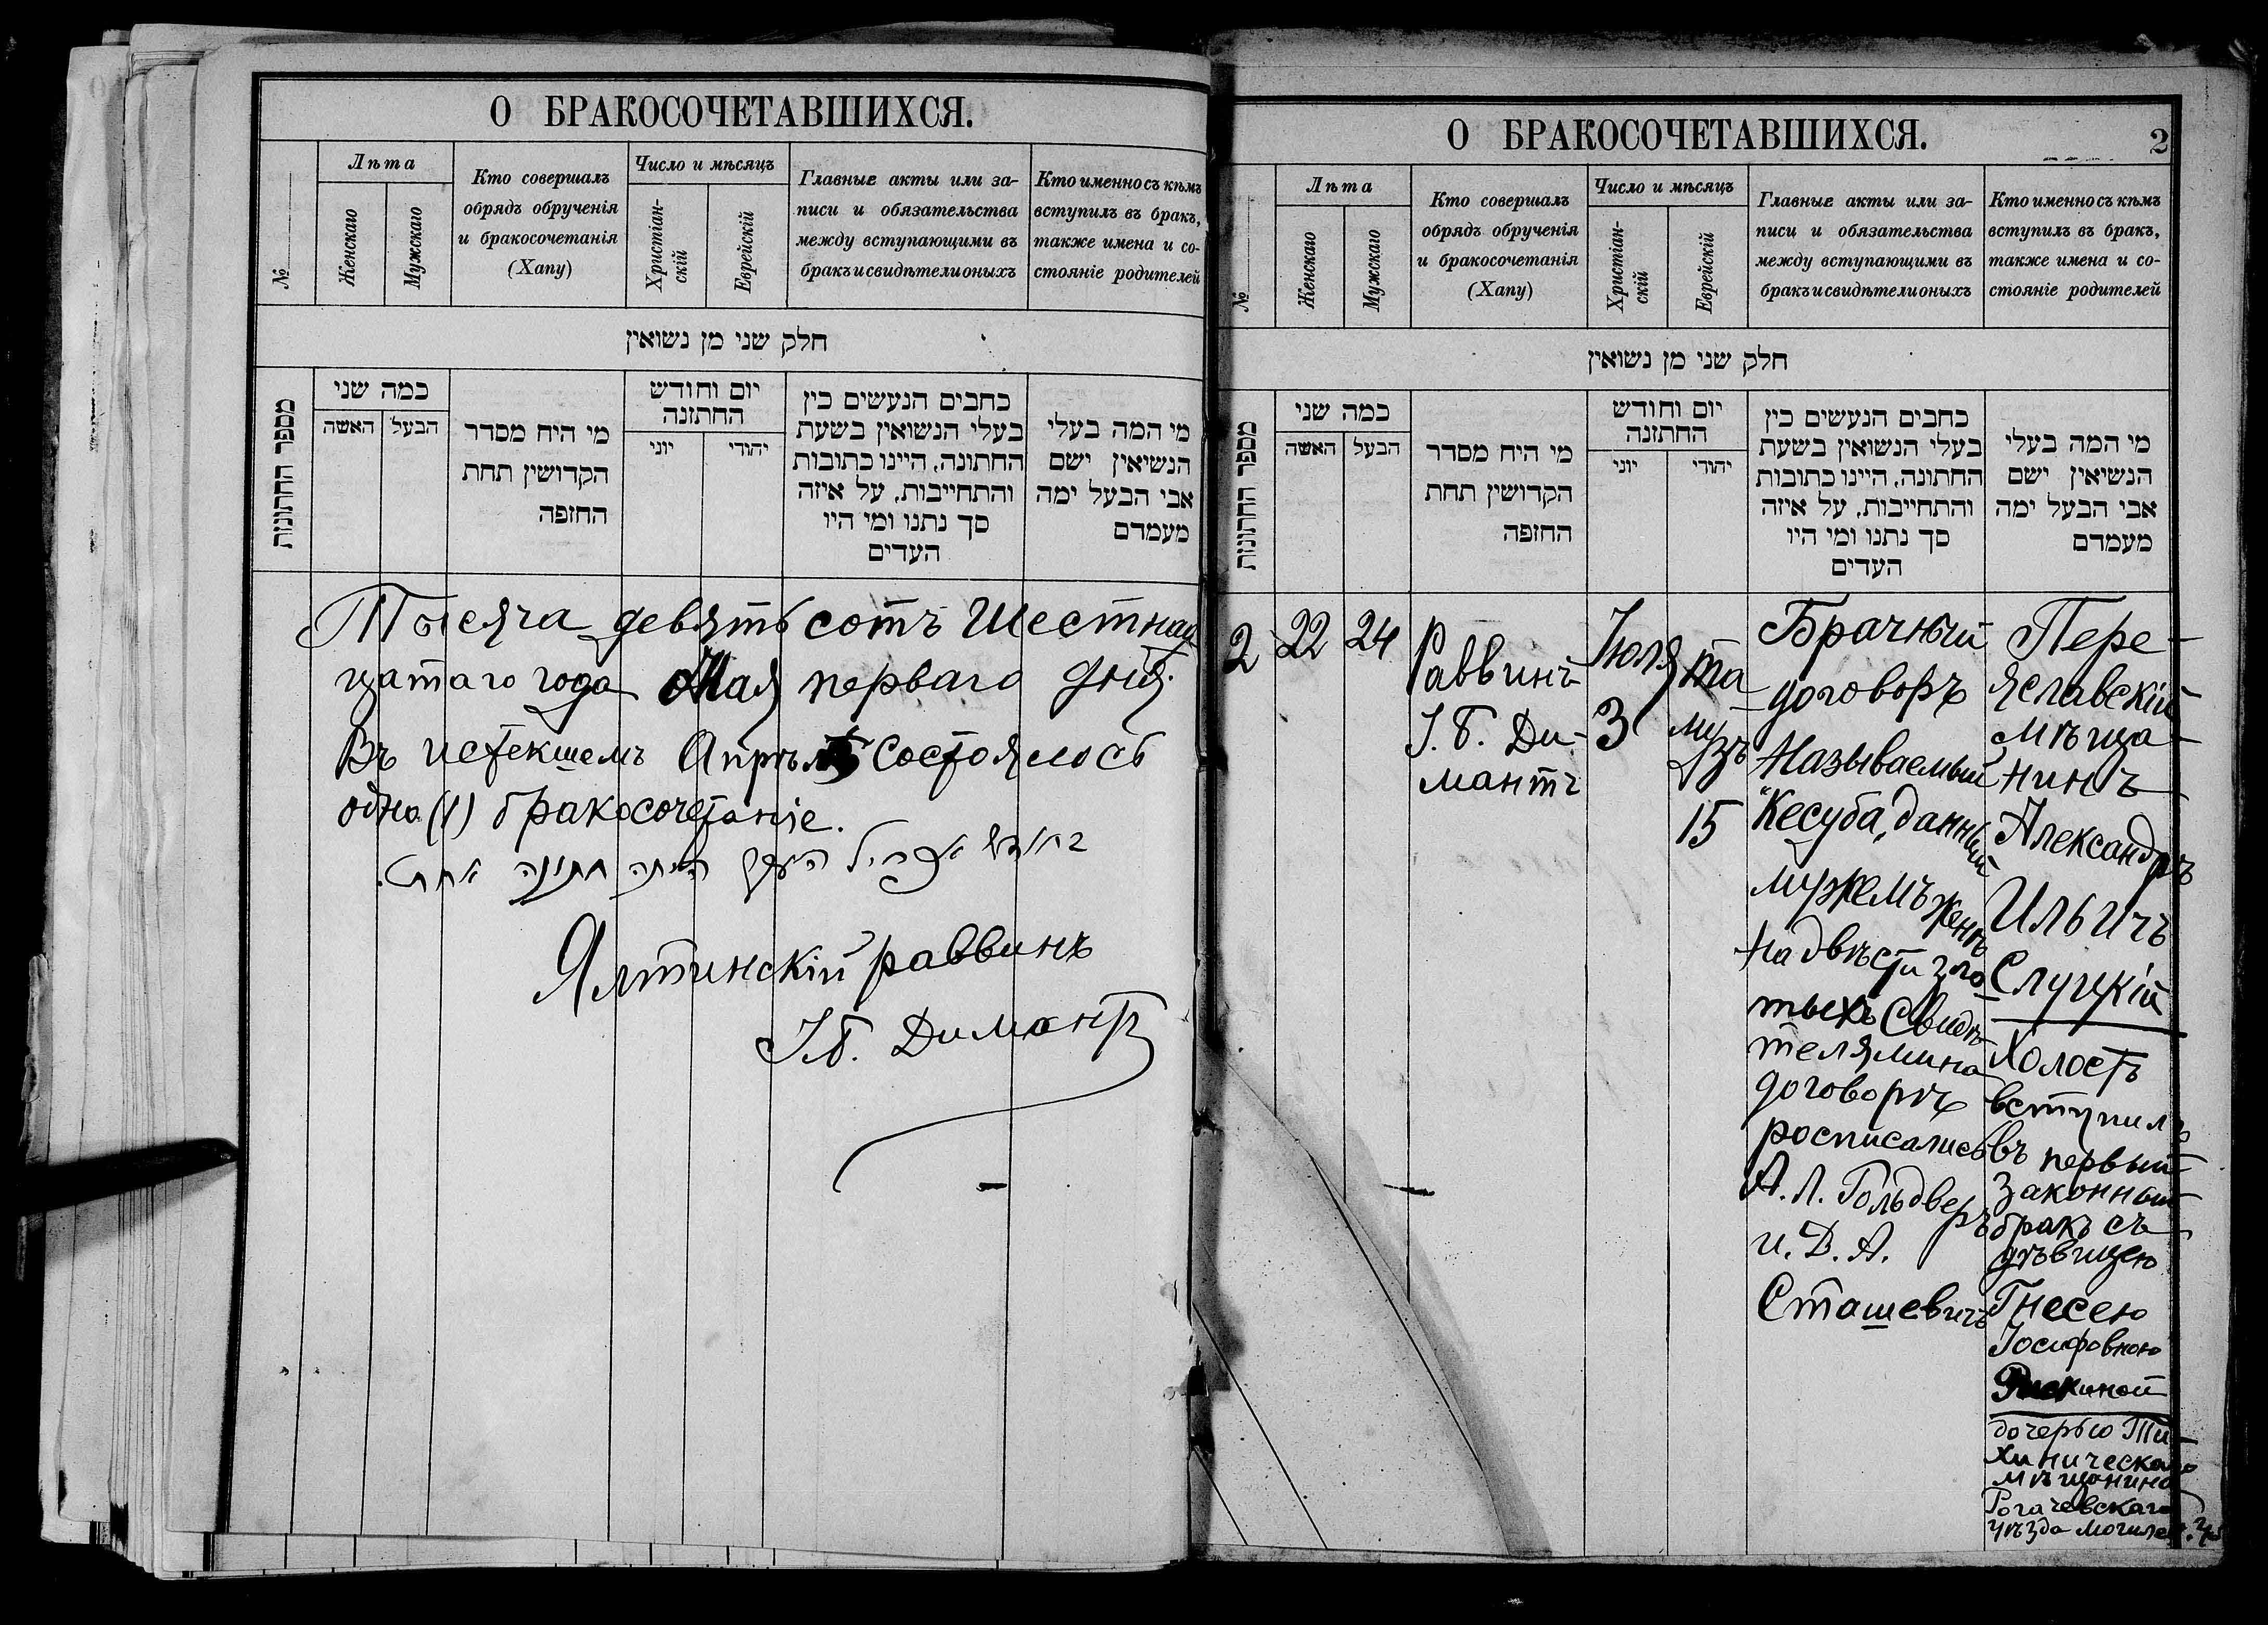 О БРАКОСОЧЕТАВШИХСЯ.
№
Лѣта
Женскаго
Мужскаго
Кто совершалъ
обрядъ обрученія
и бракосочетанія
(Хапу)
Число и мѣсяцъ
Христіан-
скій
Еврейскій
Главные акты или за-
писи и обязательства
между вступающими въ
бракъ и свидѣтели оныхъ
Кто именно съ кѣмъ
вступилъ въ бракъ,
также имена и со-
стояніе родителей
חלק שני מן נשואין
מספר החתונות
כמה שני
האשה
הבעל
מי היח מסדר
הקדושין תחת
החופה
יום וחודש
החתונה
יוני
יהודי
כתבים הנעשים בין
בעלי הנשואין בשעת
החתונה, היינו כתובות
והתחייבות, על איזה
סך נתנו ומי היו
העדים
מי המה בעלי
הנשיאין ישם
אבי הבעל ימה
מעמדם
Тысяча девятьсотъ Шестнад
цатаго года Мая перваго дня.
Въ истекшемъ Апрѣлѣ состоялось
одно (1) бракосочетаніе.
בחודש אפריל העבר היתה חתונה אחת.
Ялтинскій раввинъ
І.Б. Димантъ
О БРАКОСОЧЕТАВШИХСЯ.
2
№
Лѣта
Женскаго
Мужскаго
Кто совершалъ
обрядъ обрученія
и бракосочетанія
(Хапу)
Число и мѣсяцъ
Христіан-
скій
Еврейскій
Главные акты или за-
писи и обязательства
между вступающими въ
бракъ и свидѣтели оныхъ
Кто именно съ кѣмъ
вступилъ въ бракъ,
также имена и со-
стояніе родителей
חלק שני מן נשואין
מספר החתונות
כמה שני
האשה
הבעל
מי היח מסדר
הקדושין תחת
החופה
יום וחודש
החתונה
יוני
יהודי
כתבים הנעשים בין
בעלי הנשואין בשעת
החתונה, היינו כתובות
והתחייבות, על איזה
סך נתנו ומי היו
העדים
מי המה בעלי
הנשיאין ישם
אבי הבעל ימה
מעמדם
2
22
24
Раввинъ
І. Б. Ди-
мантъ
Іюля
3
Та-
му
зъ
15
Брачный
договоръ
называемый
"Кесуба" данный
мужемъ женѣ
на двѣсти зло-
тыхъ Свидѣ
телями на
договорѣ
росписались
А. Л. Гольдверъ
и. Д. А.
Сташевичъ
Пере-
яславскій
мѣща-
нинъ
Александръ
Ильичъ
Слуцкій
Холостъ
вступилъ
въ первый
законный
бракъ съ
дѣвицею
Гнесею
Іосифовною
Рискиной
дочерью Ти-
хиническаго
мѣщанина
Рогачевскаго
уѣзда Могилев. губ